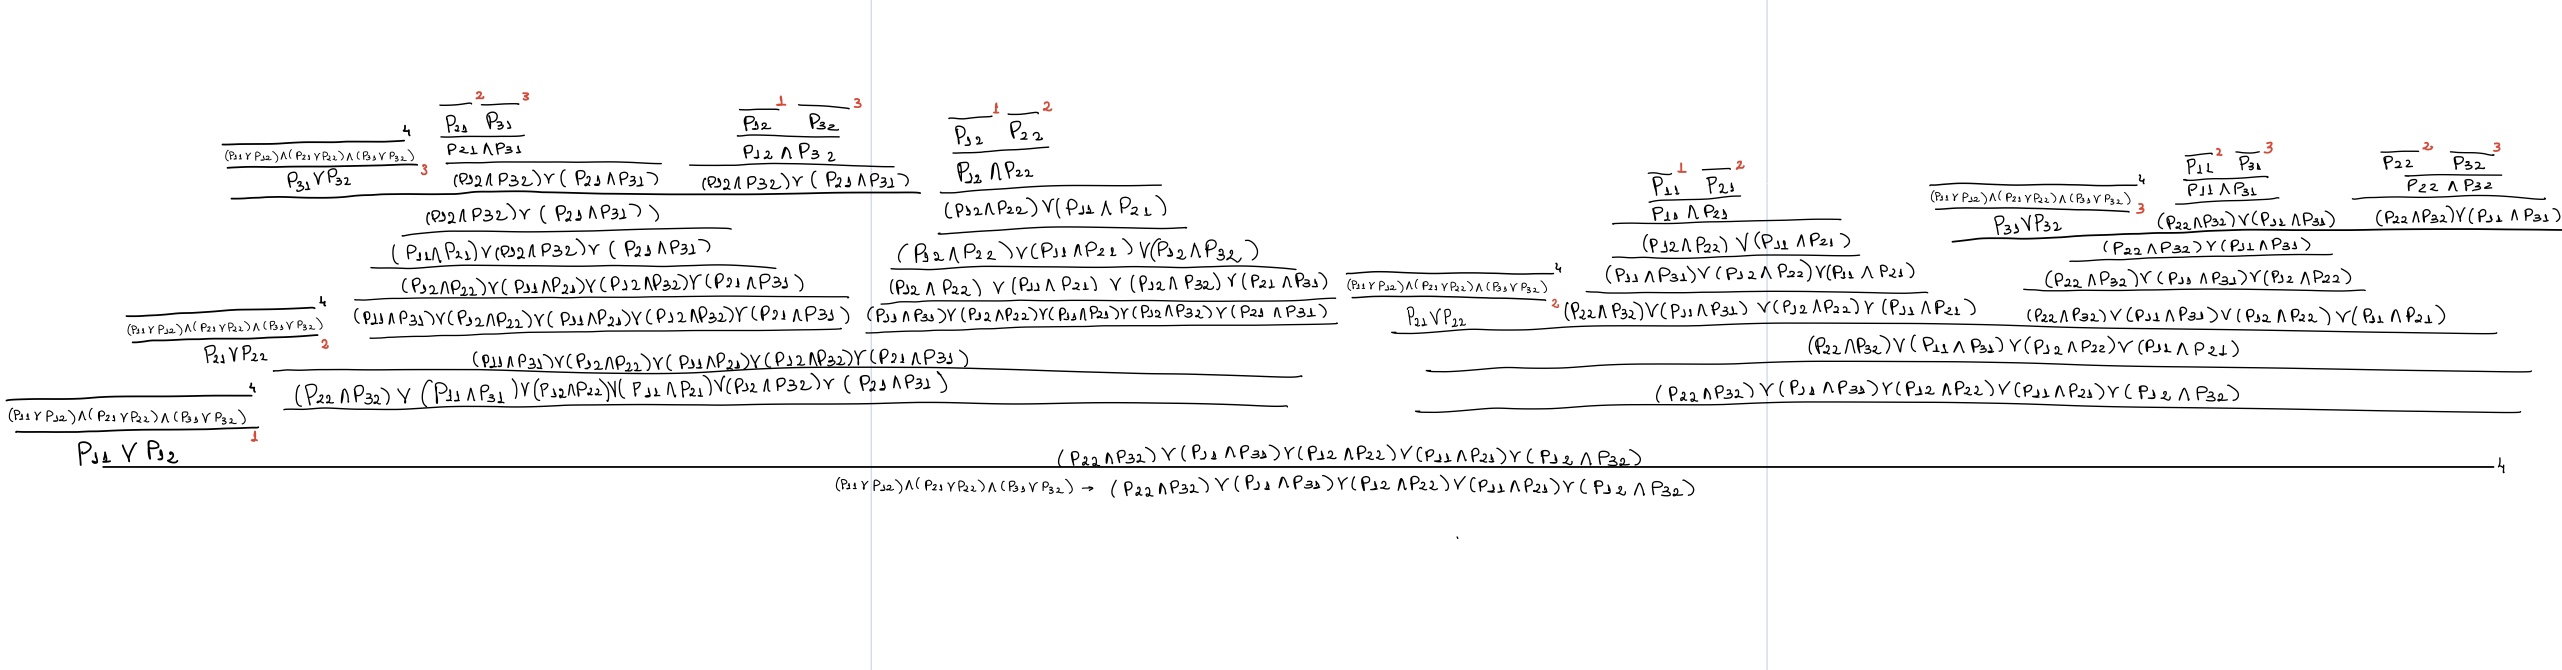 2 3 1 3 1 2
P₂₁ P₃₁ P₁₂ P₃₂ P₁₂ P₂₂
4 P₂₁∧P₃₁ P₁₂∧P₃₂ P₁₂∧P₂₂
(P₁₁∨P₁₂)∧(P₂₁∨P₂₂)∧(P₃₁∨P₃₂) 3
P₃₁∨P₃₂ (P₁₂∧P₃₂)∨(P₂₁∧P₃₁) (P₁₂∧P₃₂)∨(P₂₁∧P₃₁)
(P₁₂∧P₃₂)∨(P₂₁∧P₃₁)) (P₁₂∧P₂₂)∨(P₁₁∧P₂₁)
(P₁₁∧P₂₁)∨(P₁₂∧P₃₂)∨(P₂₁∧P₃₁) (P₁₂∧P₂₂)∨(P₁₁∧P₂₁)∨(P₁₂∧P₃₂)
(P₁₂∧P₂₂)∨(P₁₁∧P₂₁)∨(P₁₂∧P₃₂)∨(P₂₁∧P₃₁) (P₁₂∧P₂₂)∨(P₁₁∧P₂₁)∨(P₁₂∧P₃₂)∨(P₂₁∧P₃₁)
4 (P₁₁∧P₃₁)∨(P₁₂∧P₂₂)∨(P₁₁∧P₂₁)∨(P₁₂∧P₃₂)∨(P₂₁∧P₃₁) (P₁₁∧P₃₁)∨(P₁₂∧P₂₂)∨(P₁₁∧P₂₁)∨(P₁₂∧P₃₂)∨(P₂₁∧P₃₁)
(P₁₁∨P₁₂)∧(P₂₁∨P₂₂)∧(P₃₁∨P₃₂) 2
P₂₁∨P₂₂ (P₁₁∧P₃₁)∨(P₁₂∧P₂₂)∨(P₁₁∧P₂₁)∨(P₁₂∧P₃₂)∨(P₂₁∧P₃₁)
4 (P₂₂∧P₃₂)∨(P₁₁∧P₃₁)∨(P₁₂∧P₂₂)∨(P₁₁∧P₂₁)∨(P₁₂∧P₃₂)∨(P₂₁∧P₃₁)
(P₁₁∨P₁₂)∧(P₂₁∨P₂₂)∧(P₃₁∨P₃₂) 1
P₁₁∨P₁₂
1 2 2 3 2 3
P₁₁ P₂₁ P₁₁ P₃₁ P₂₂ P₃₂
P₁₁∧P₂₁ 4 P₁₁∧P₃₁ P₂₂∧P₃₂
(P₁₁∨P₁₂)∧(P₂₁∨P₂₂)∧(P₃₁∨P₃₂) 3
P₃₁∨P₃₂ (P₂₂∧P₃₂)∨(P₁₁∧P₃₁) (P₂₂∧P₃₂)∨(P₁₁∧P₃₁)
(P₁₂∧P₂₂)∨(P₁₁∧P₂₁) (P₂₂∧P₃₂)∨(P₁₁∧P₃₁)
(P₁₁∧P₃₁)∨(P₁₂∧P₂₂)∨(P₁₁∧P₂₁) (P₂₂∧P₃₂)∨(P₁₁∧P₃₁)∨(P₁₂∧P₂₂)
4 (P₂₂∧P₃₂)∨(P₁₁∧P₃₁)∨(P₁₂∧P₂₂)∨(P₁₁∧P₂₁) (P₂₂∧P₃₂)∨(P₁₁∧P₃₁)∨(P₁₂∧P₂₂)∨(P₁₁∧P₂₁)
(P₁₁∨P₁₂)∧(P₂₁∨P₂₂)∧(P₃₁∨P₃₂) 2
P₂₁∨P₂₂
(P₂₂∧P₃₂)∨(P₁₁∧P₃₁)∨(P₁₂∧P₂₂)∨(P₁₁∧P₂₁)
(P₂₂∧P₃₂)∨(P₁₁∧P₃₁)∨(P₁₂∧P₂₂)∨(P₁₁∧P₂₁)∨(P₁₂∧P₃₂)
(P₂₂∧P₃₂)∨(P₁₁∧P₃₁)∨(P₁₂∧P₂₂)∨(P₁₁∧P₂₁)∨(P₁₂∧P₃₂) 4
(P₁₁∨P₁₂)∧(P₂₁∨P₂₂)∧(P₃₁∨P₃₂) → (P₂₂∧P₃₂)∨(P₁₁∧P₃₁)∨(P₁₂∧P₂₂)∨(P₁₁∧P₂₁)∨(P₁₂∧P₃₂)